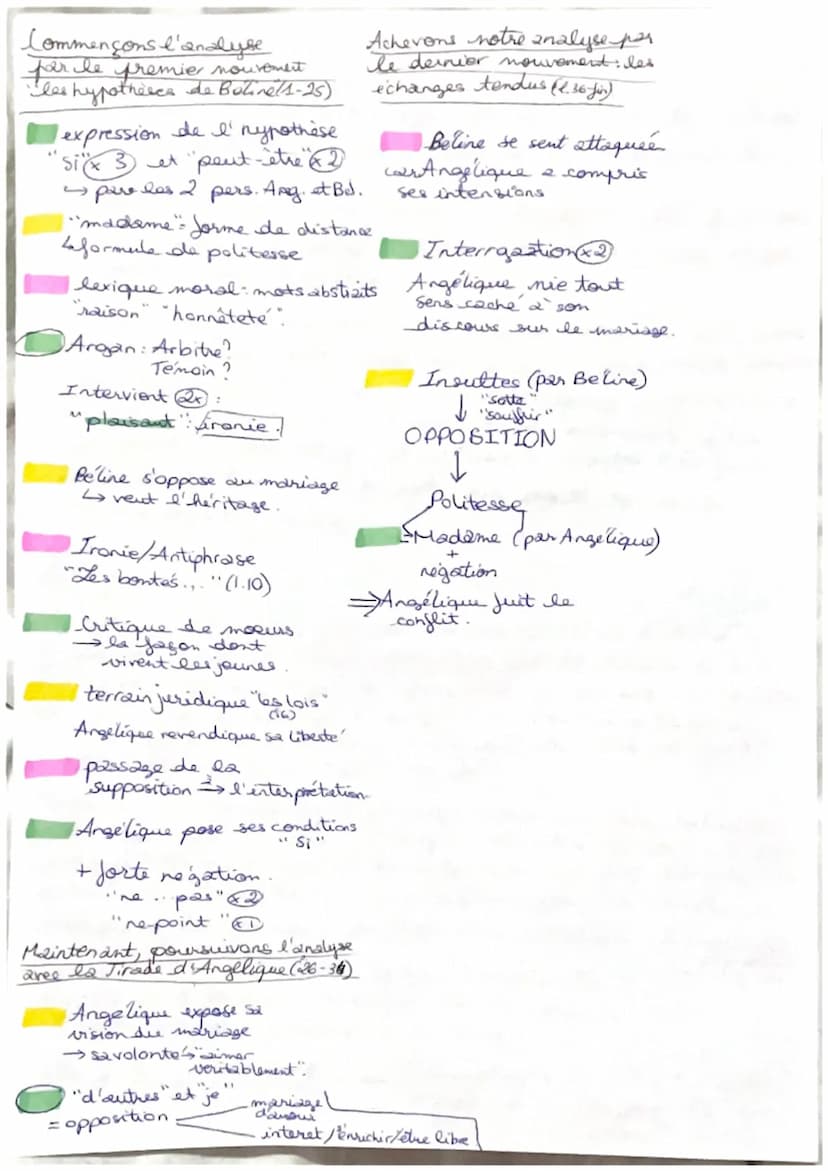 Commençons l'analyse
par le premier mouvement
: les hypothèses de Béline (1-25)
expression de l'hypothèse
"si" x 3 et "peut-être" x 2
↳ par les 2 pers. Ang. et Bel.
"madame" = forme de distance
↳ formule de politesse
lexique moral : mots abstraits
"raison" "honnêteté".
Argan : Arbitre ?
Témoin ?
Intervient 2x :
"plaisant" : ironie.
Béline s'oppose au mariage
↳ veut l'héritage.
Ironie/Antiphrase
"Les bontés..." (l.10)
Critique de moeurs
→ la façon dont
vivent les jeunes.
terrain juridique "les lois"
(16)
Angélique revendique sa liberté
passage de la
supposition à → l'interprétation
Angélique pose ses conditions
"si"
+ forte négation.
"ne .. pas" x2
"ne-point" x1
Maintenant, poursuivons l'analyse
avec la Tirade d'Angélique (26-34)
Angélique expose sa
vision du mariage
→ sa volonté ↳ "aimer
véritablement".
"d'autres" et "je"
= opposition
mariage
d'amour
interet / s'enrichir / être libre
Achevons notre analyse par
le dernier mouvement : les
échanges tendus (l.36 fin)
Béline se sent attaquée
car Angélique a compris
ses intensions
Interrgaation x2
Angélique nie tout
sens caché à son
discours sur le mariage.
Insultes (par Beline)
↓ "sotte"
"souffrir"
OPPOSITION
↓
Politesse
Madame (par Angélique)
+
négation
⇒ Angélique fuit le
conflit.